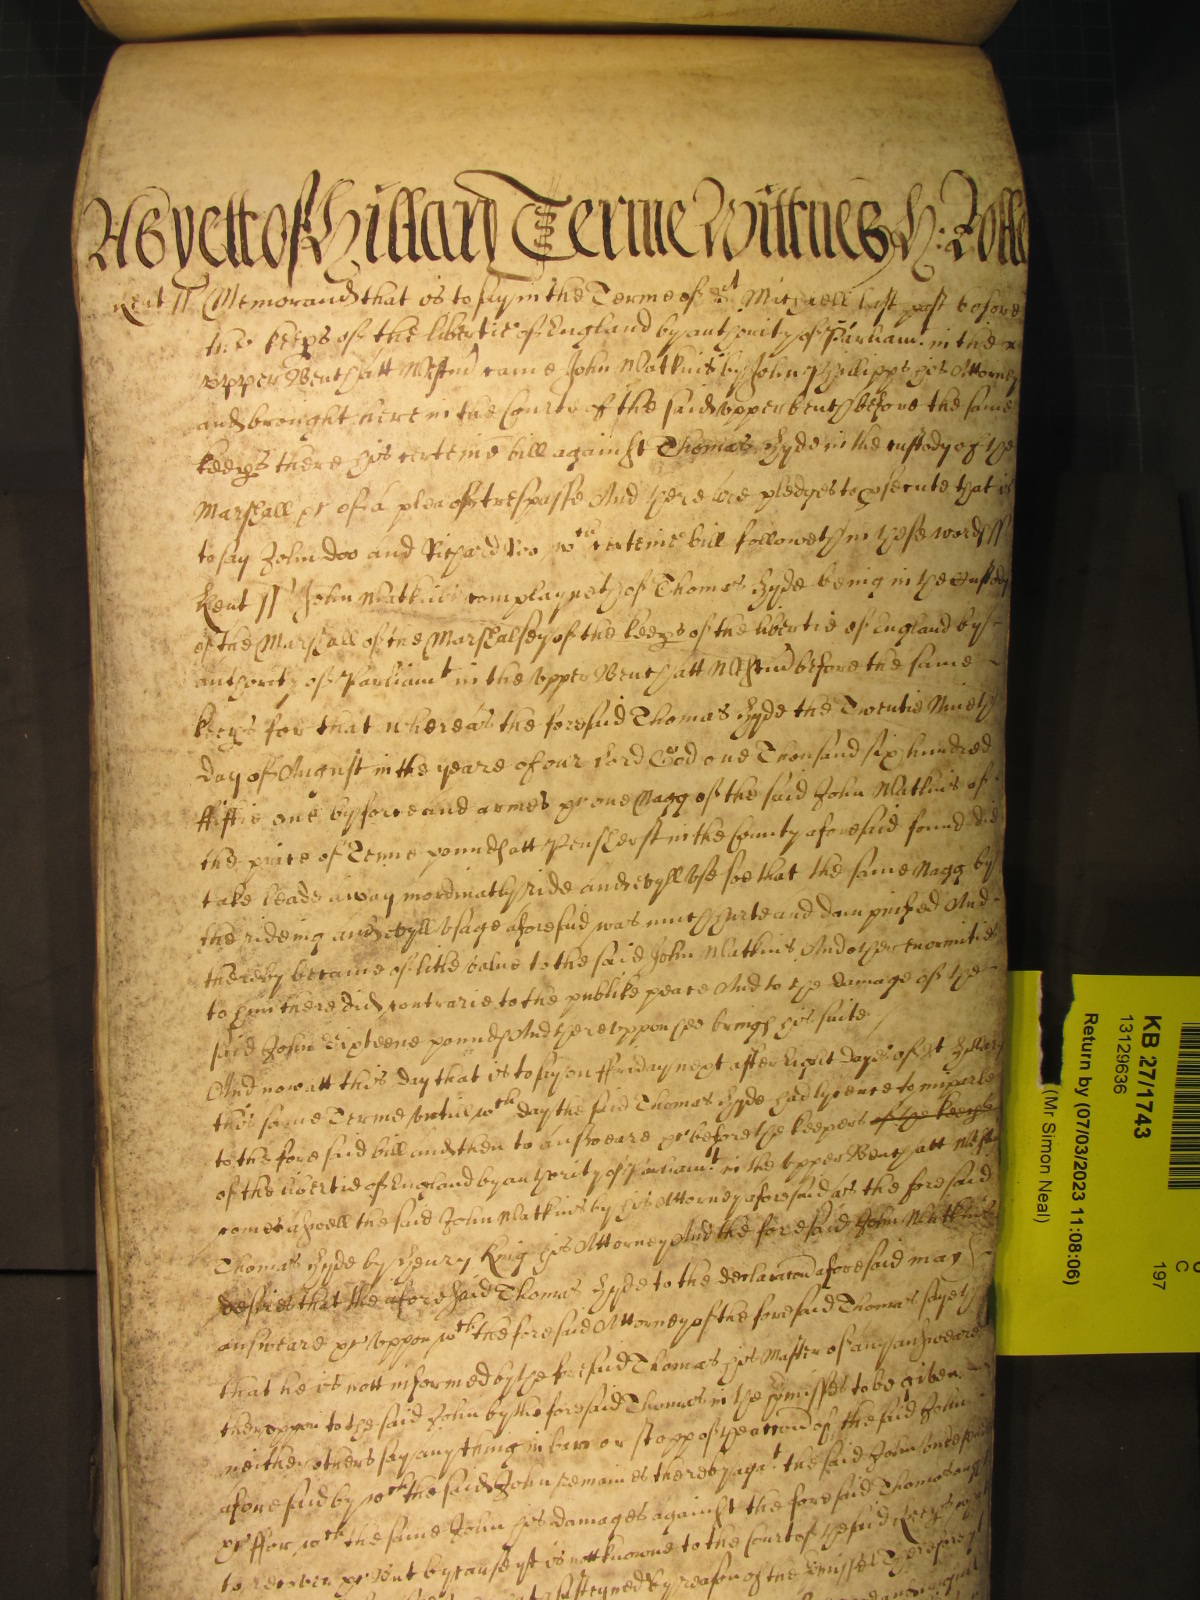 As yett of Hillary Terme Wittnes H: Rolle
Kent ss Memorand that is to say in the Terme of St Michaell last past before
the keeps of the libertie of England by authority of Parliamt in the
upper Bench att Westm came John Watkins by John Philipps his Attorney
and brought here in the Courte of the said upper bench before the same
keeps there his certeine bill against Thomas Hyde in the custody of the
Marshall &c of a plea of trespasse And there are pledges to psecute that is
to say John Doo and Richard Roo wch certeine bill followeth in these words ss
Kent ss John Watkins complayneth of Thomas Hyde being in the Custody
of the Marshall of the Marshalsey of the keeps of the libertie of England by
authority of Parliamt in the upper Bench att Westm before the same
keeps for that whereas the foresaid Thomas Hyde the Twentie Nineth
day of August in the yeare of our Lord God one Thousand six hundred
ffiftie one by force and armes &c one Nagg of the said John Watkins of
the price of Tenne pounds att Pensherst in the County aforesaid found did
take leade away inordinatly ride and evyll use soe that the same Nagg by
the rideing and evyll usage aforesaid was much hurte and dampnifyed And
thereby became of little value to the said John Watkins And other enormities
to him there did contrarie to the publike peace And to the damage of the
said John Sixteene pounds And thereuppon hee brings his suite
And now att this day that is to say on ffriday next after Eight dayes of St Hillary
this same Terme untill wch day the said Thomas Hyde had lycence to imparle
to the foresaid bill and then to answeare &c before the keepers of the keeps
of the libertie of England by authority of Parliamt in the upper Bench att Westm
comes aswell the said John Watkins by his Attorney aforesaid as the foresaid
Thomas Hyde by Henry King his Attorney And the foresaid John Watkins
desires that the aforesaid Thomas Hyde to the declaracon aforesaid may
answeare &c uppon wch the foresaid Attorney of the foresaid Thomas sayeth
that he is nott informed by the foresaid Thomas his Master of any answeare
thereuppon to the said John by the foresaid Thomas in the pmisses to be given
neither others say any thing in barr or stopp of the accon of the said John
aforesaid by wch the said John remaines thereby agat the said John
&c ffor wch the same John his damages against the foresaid Thomas ought
to recover &c but because yt is nott knowne to the Court of the said keeps
susteyned by reason of the pmisses Therefore
KB 27/1743
13129636
Return by (07/03/2023 11:08:06)
(Mr Simon Neal)
C
197